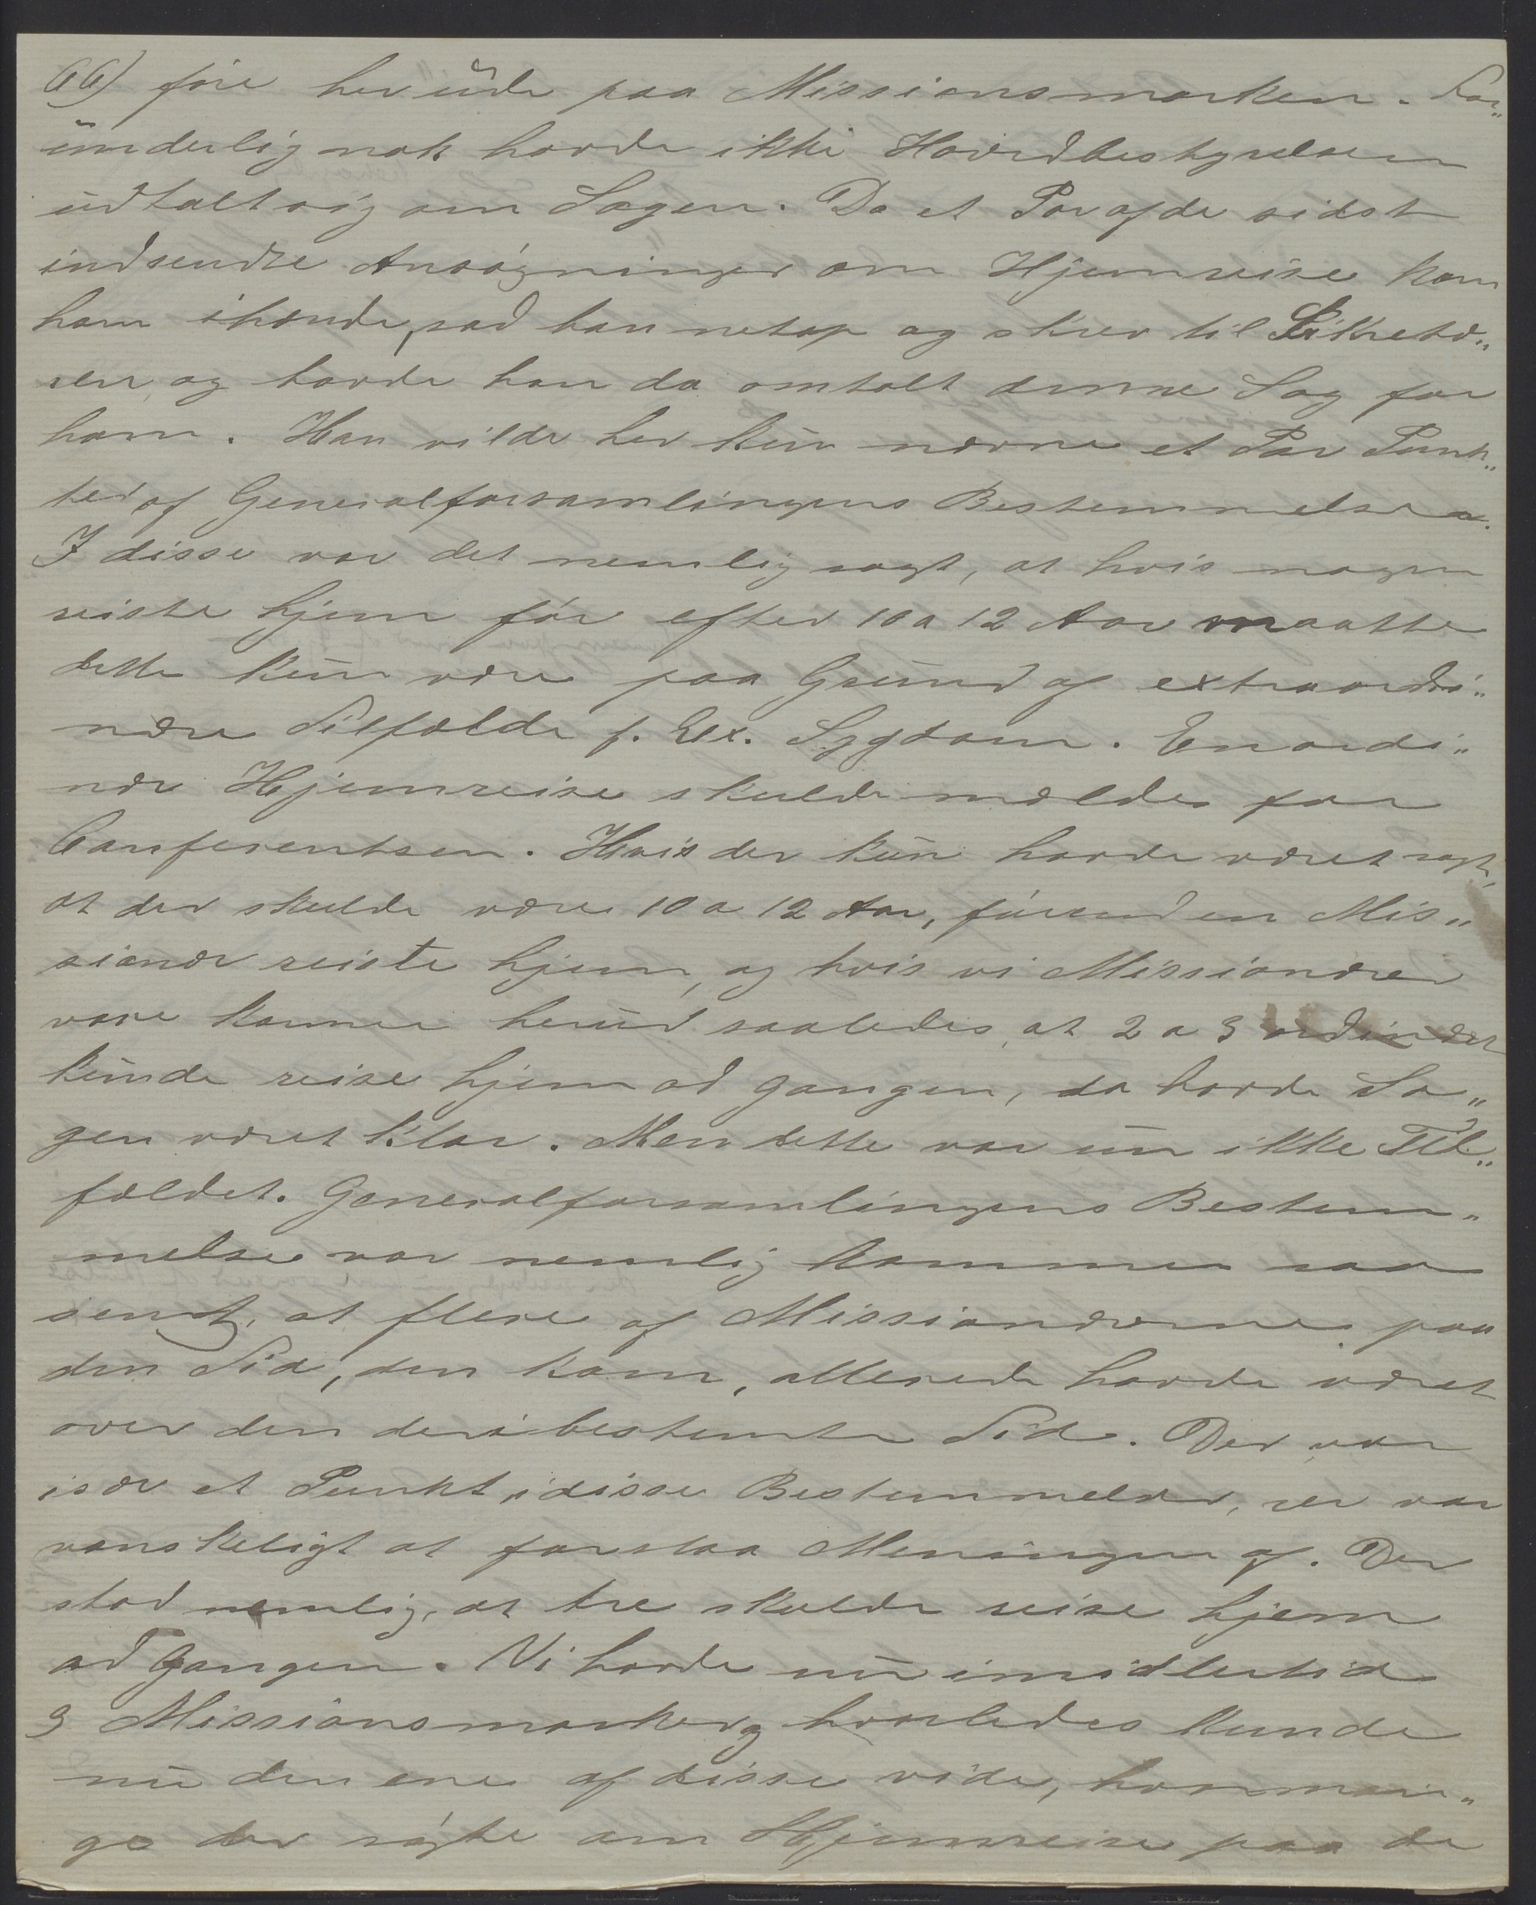 66) före her ude paa Missionsmarken. For„
underlig nok havde ikke Hovedbestyrelsen
udtalt sig om Sagen. Da et Par af de sidst
indsendte Ansøgninger om Hjemreise kom
ham ihænde, sad han netop og skrev til Sekretæ„
ren, og havde han da omtalt denne Sag for
ham. Han vilde her kun nævne et Par Punk„
ter af Generalforsamlingens Bestemmelser.
I disse var det nemlig sagt, at hvis nogen
reiste hjem før efter 10 a 12 Aar maatte
dette kun være paa Grund af extraordi„
nære Tilfælde f. Ex. Sygdom. En ordi„
nær Hjemreise skulde meldes for
Conferentsen. Hvis der kun havde været sagt,
at der skulde være 10 a 12 Aar, førend en Mis„
sionær reiste hjem, og hvis vi Missionærer
vare komne herud saaledes, at 2 a 3 ordinært
kunde reise hjem ad Gangen, da havde Sa„
gen været klar. Men dette var nu ikke Til„
fældet. Generalforsamlingens Bestem„
melse var nemlig kommen saa
sendt, at flere af Missionærerne paa
den Tid, den kom, allerede havde været
over den deri bestemte Tid. Der var
især et Punkt i disse Bestemmelser, der var
vanskeligt at forstaa Meningen af. Der
stod nemlig, at tre skulde reise hjem
ad Gangen. Vi havde nu imidlertid
3 Missionsmarker og hvorledes kunde
nu den ene af disse vide, hvor man„
ge der søgte om Hjemreise paa de